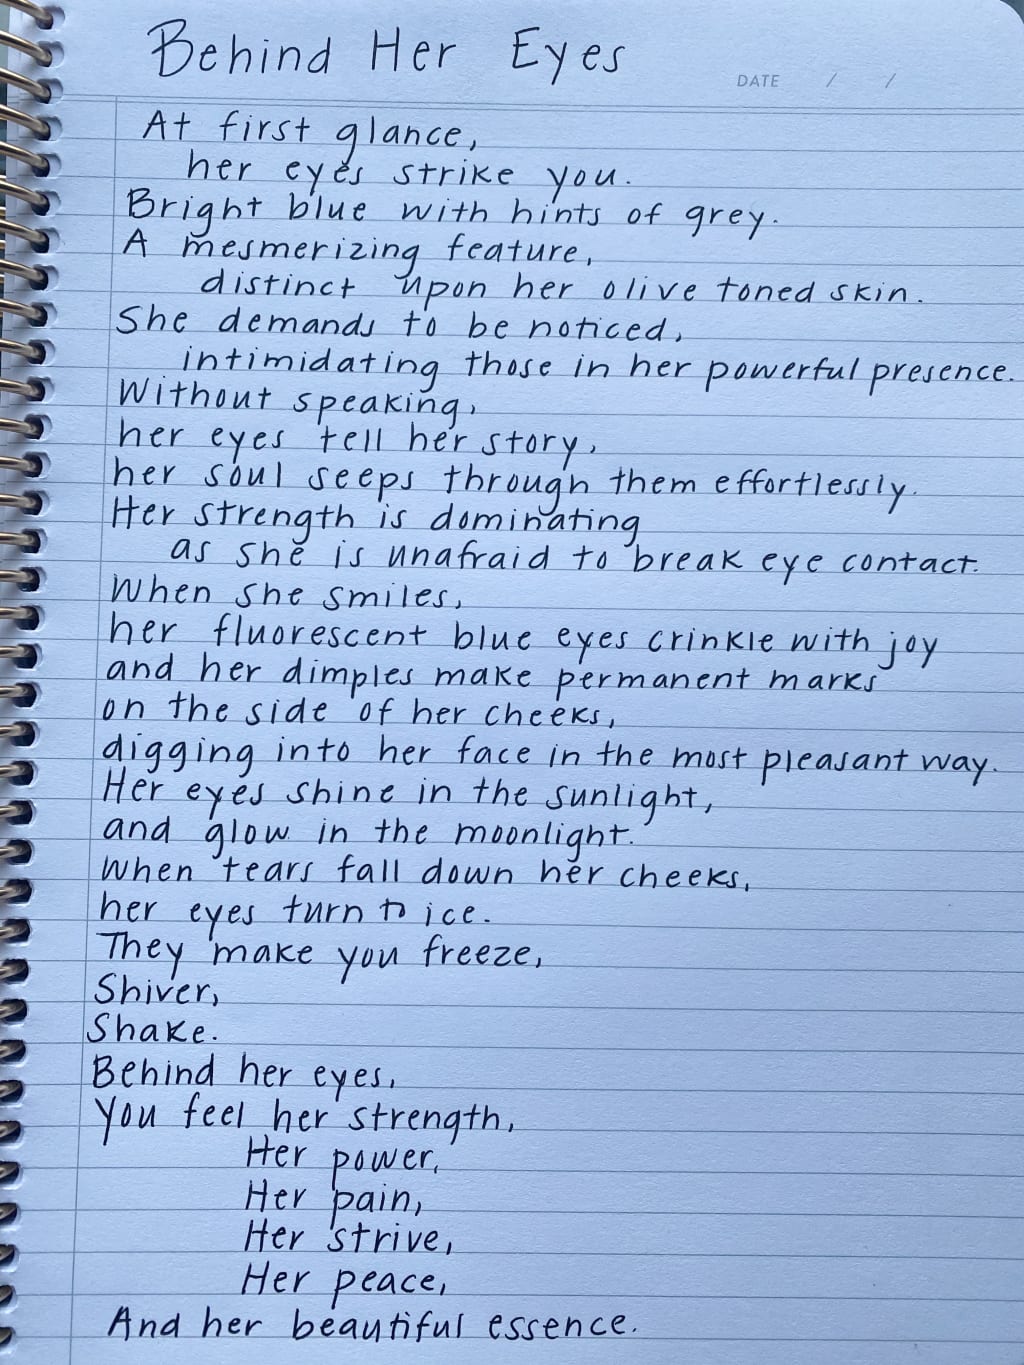 Behind Her Eyes
DATE / /
At first glance,
her eyes strike you.
Bright blue with hints of grey.
A mesmerizing feature,
distinct upon her olive toned skin.
She demands to be noticed,
intimidating those in her powerful presence.
Without speaking,
her eyes tell her story,
her soul seeps through them effortlessly.
Her strength is dominating
as she is unafraid to break eye contact.
When she smiles,
her fluorescent blue eyes crinkle with joy
and her dimples make permanent marks
on the side of her cheeks,
digging into her face in the most pleasant way.
Her eyes shine in the sunlight,
and glow in the moonlight.
When tears fall down her cheeks,
her eyes turn to ice.
They make you freeze,
Shiver,
Shake.
Behind her eyes,
You feel her strength,
Her power,
Her pain,
Her strive,
Her peace,
And her beautiful essence.